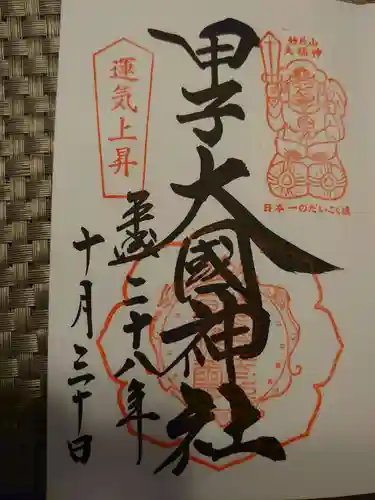 妙見山
大福神
日本一のだいこく様
甲子大國神社
運気上昇
平成二十八年
十月三十日